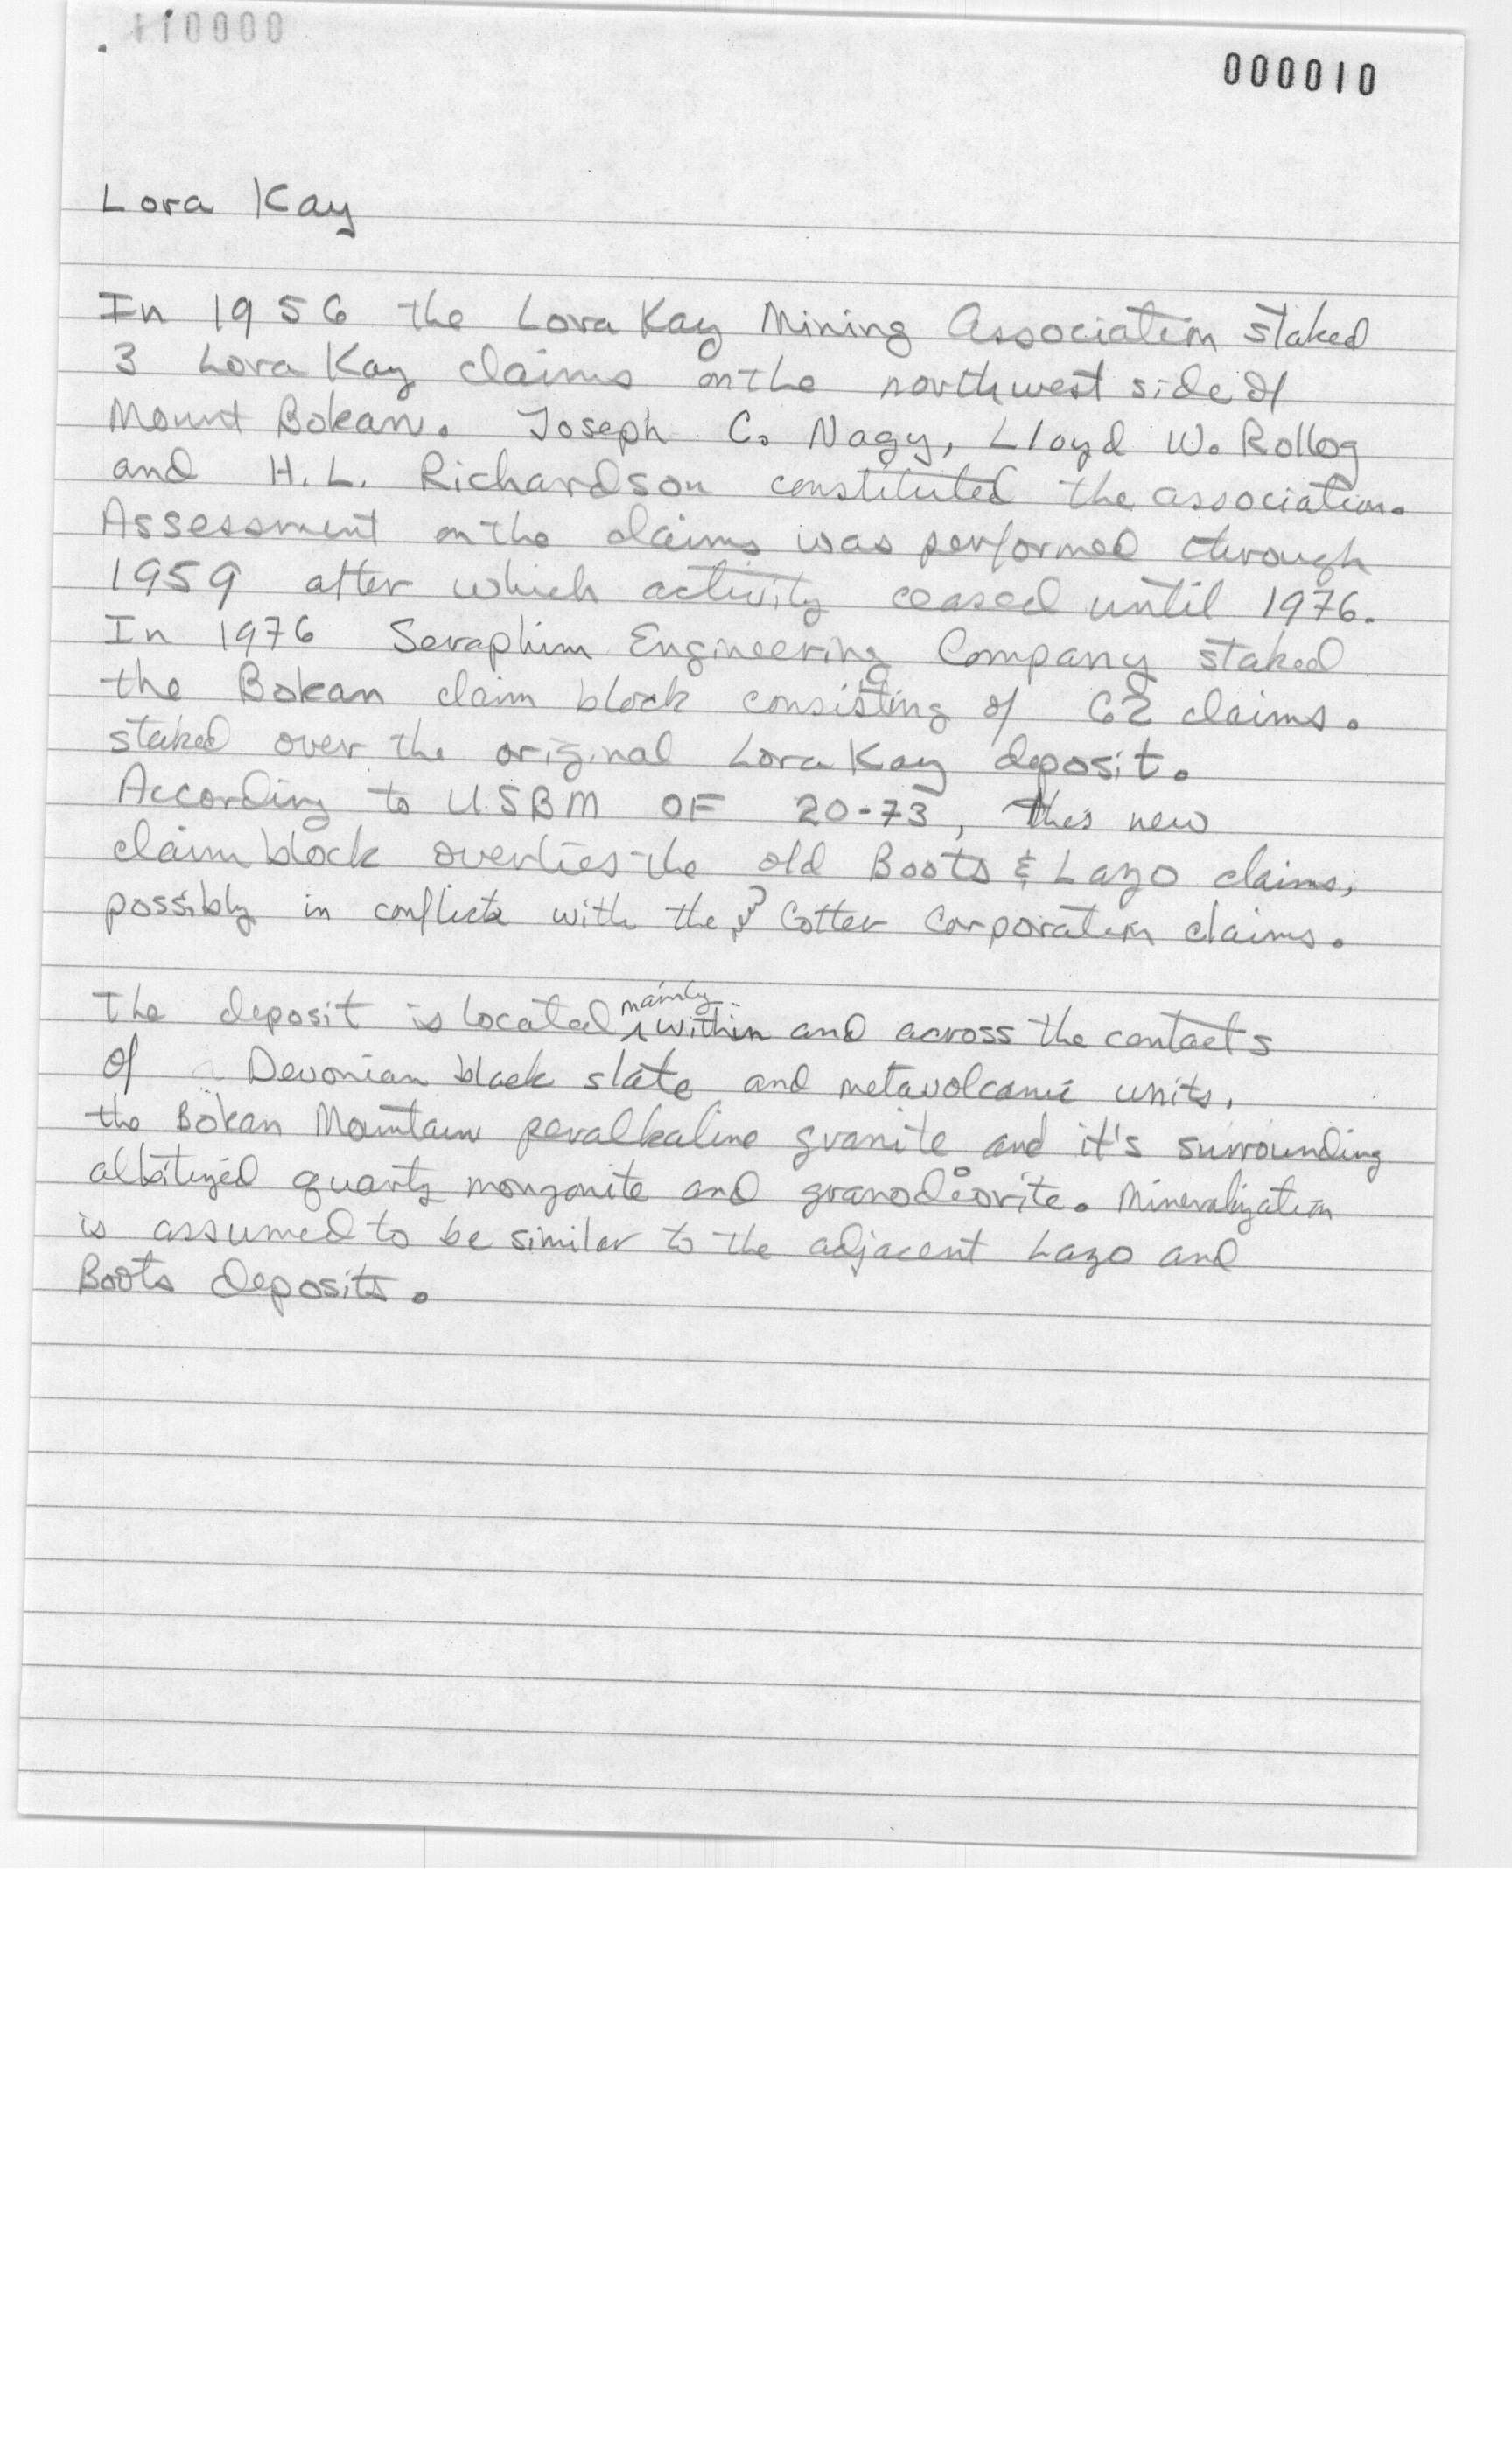 000010
Lora Kay
In 1956 the Lora Kay Mining Association staked
3 Lora Kay claims on the northwest side of
Mount Bokan. Joseph C. Nagy, Lloyd W. Rollog
and H. L. Richardson constituted the association.
Assessment on the claims was performed through
1959 after which activity ceased until 1976.
In 1976 Seraphim Engineering Company staked
the Bokan claim block consisting of 62 claims.
staked over the original Lora Kay deposit.
According to USBM OF 20-73, this new
claim block overlies the old Boots & Lazo claims,
possibly in conflict with the Cotter Corporation claims.
The deposit is located mainly within and across the contacts
of Devonian black slate and metavolcanic units,
the Bokan Mountain peralkaline granite and it's surrounding
albitized quartz monzonite and granodiorite. Mineralization
is assumed to be similar to the adjacent Lazo and
Boots deposits.